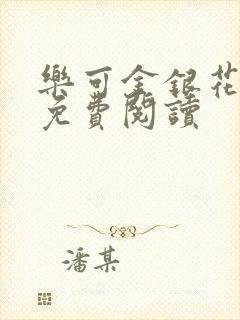 樂可金銀花
免費閱讀
潘某